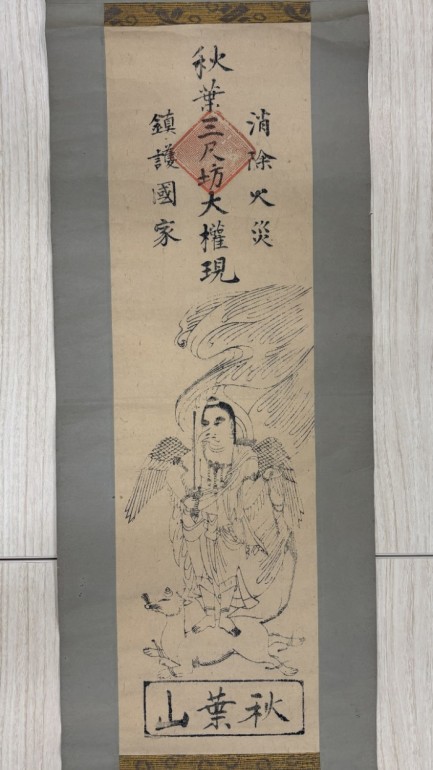 消除火災
秋葉三尺坊大權現
鎮護國家
秋葉山